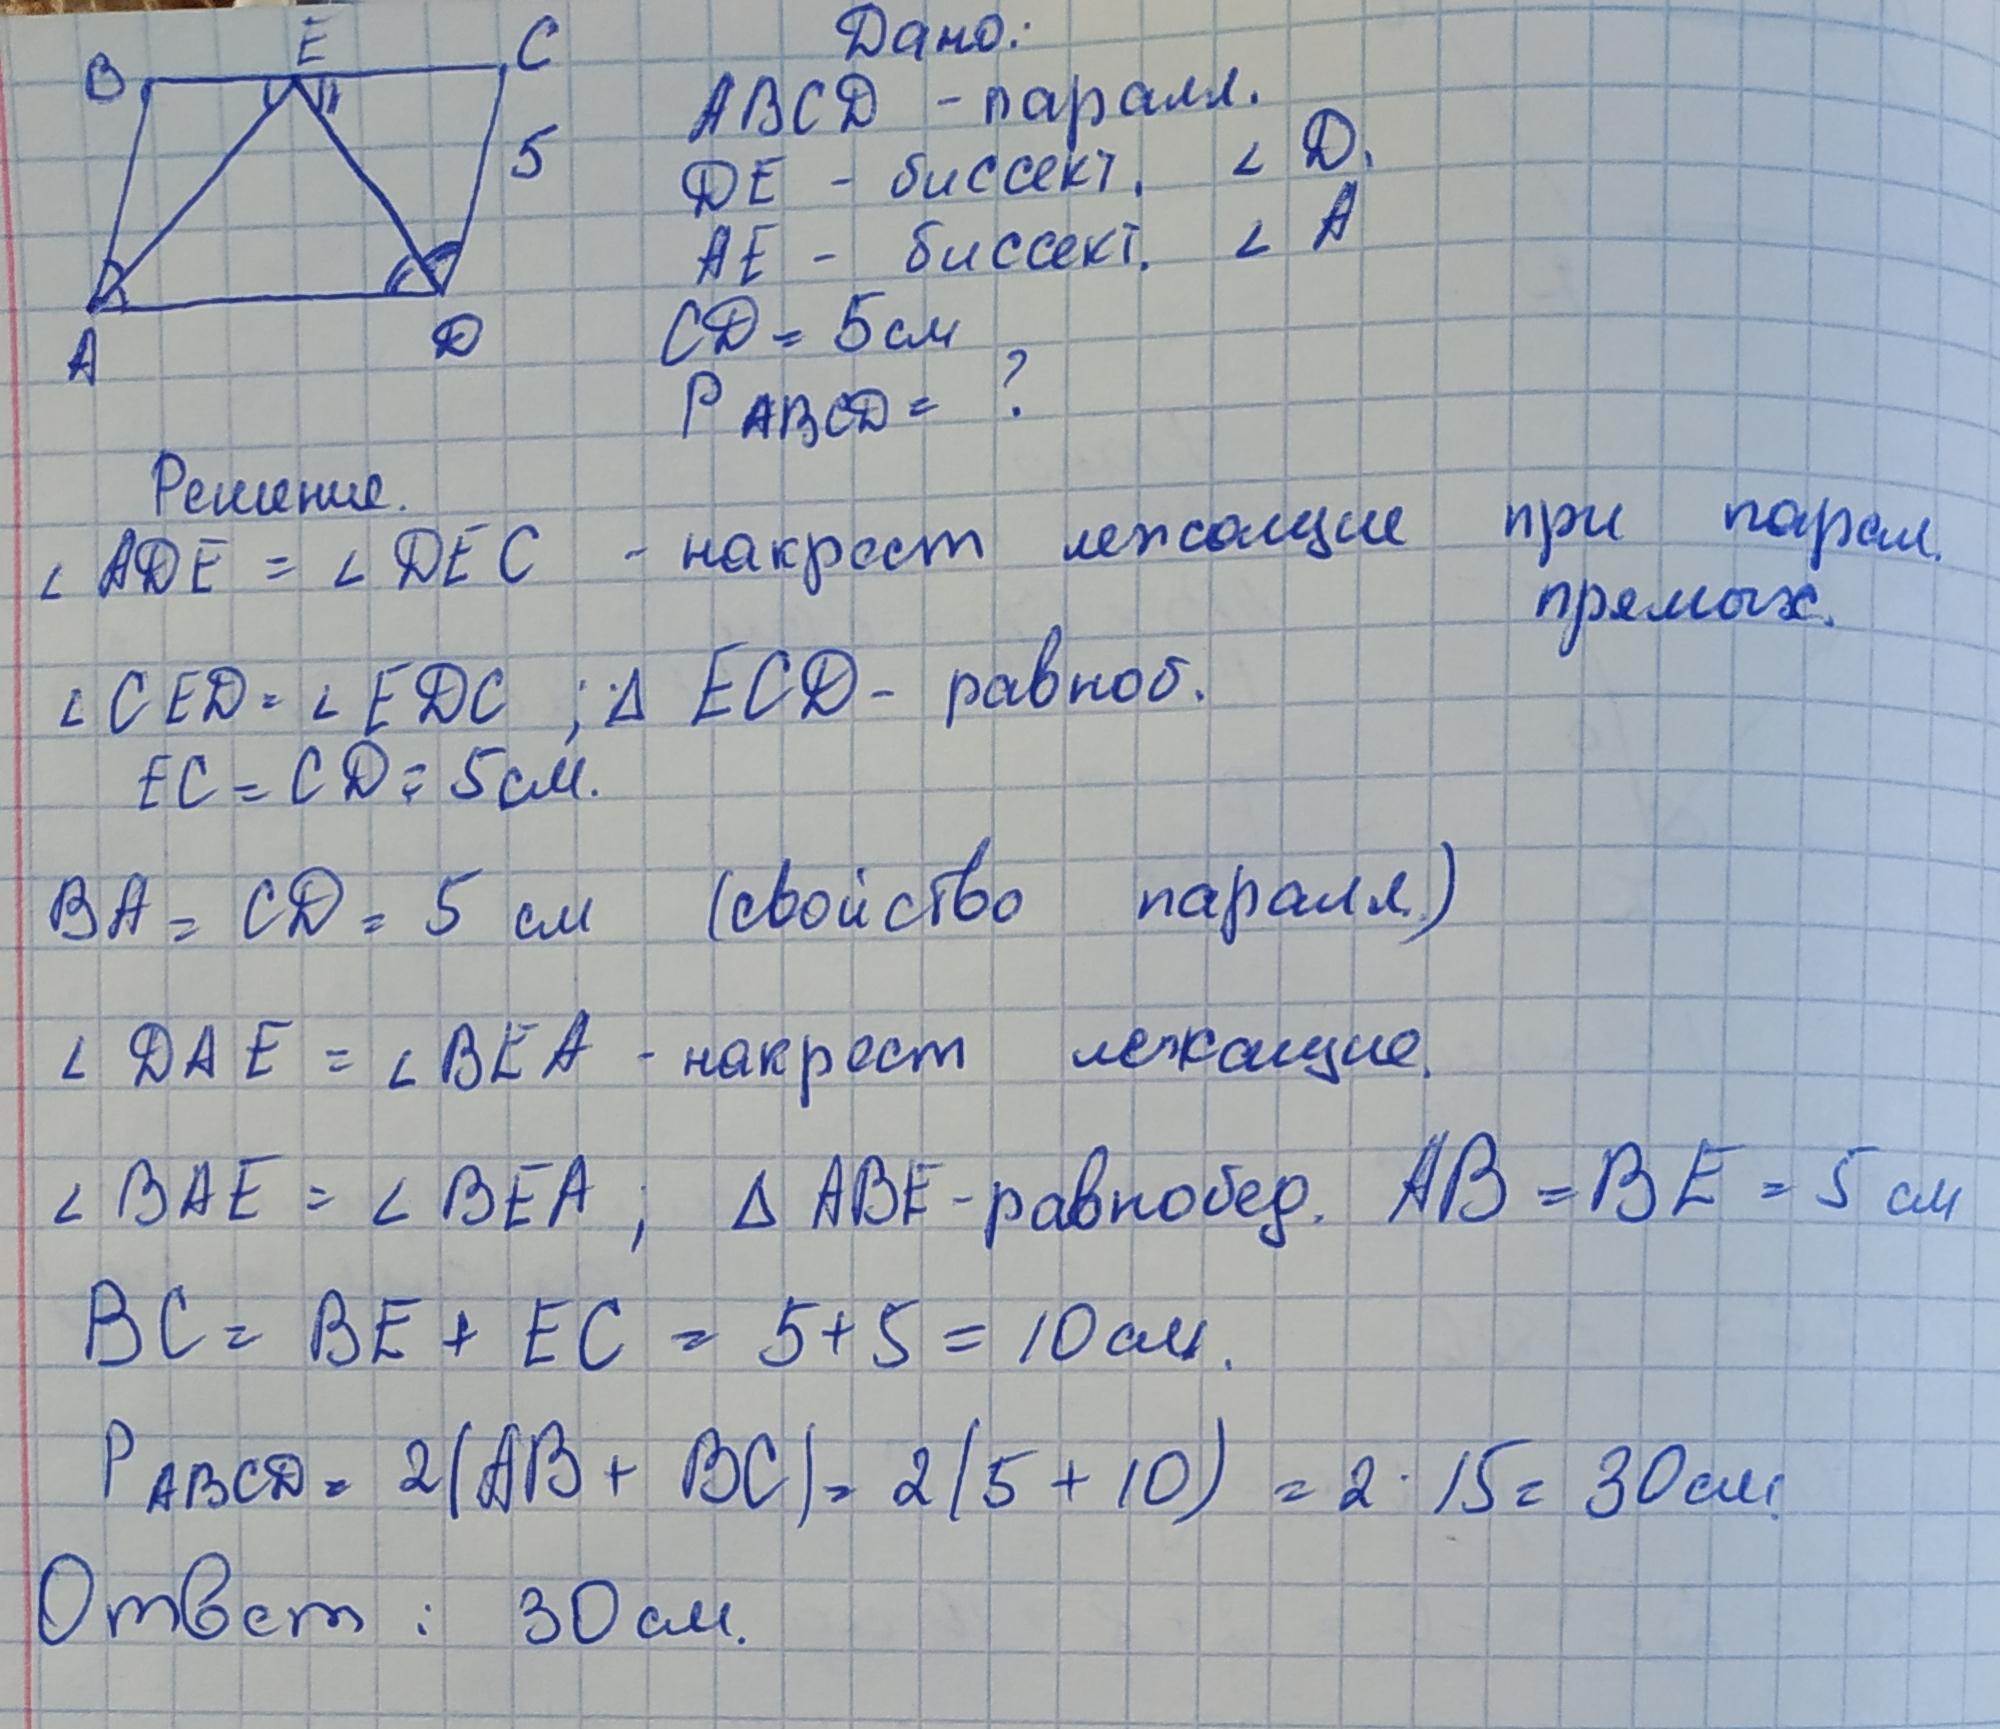 B E C
5
A D
Дано:
ABCD - паралл.
DE - биссект. ∠ D.
AE - биссект. ∠ A
CD = 5 см
P ABCD = ?
Решение.
∠ ADE = ∠ DEC - накрест лежащие при парал.
прямых.
∠ CED = ∠ EDC ; Δ ECD - равноб.
EC = CD = 5 см.
BA = CD = 5 см (свойство паралл.)
∠ DAE = ∠ BEA - накрест лежащие.
∠ BAE = ∠ BEA ; Δ ABE - равнобед. AB = BE = 5 см
BC = BE + EC = 5 + 5 = 10 см.
P ABCD = 2(AB + BC) = 2(5 + 10) = 2 · 15 = 30 см.
Ответ : 30 см.